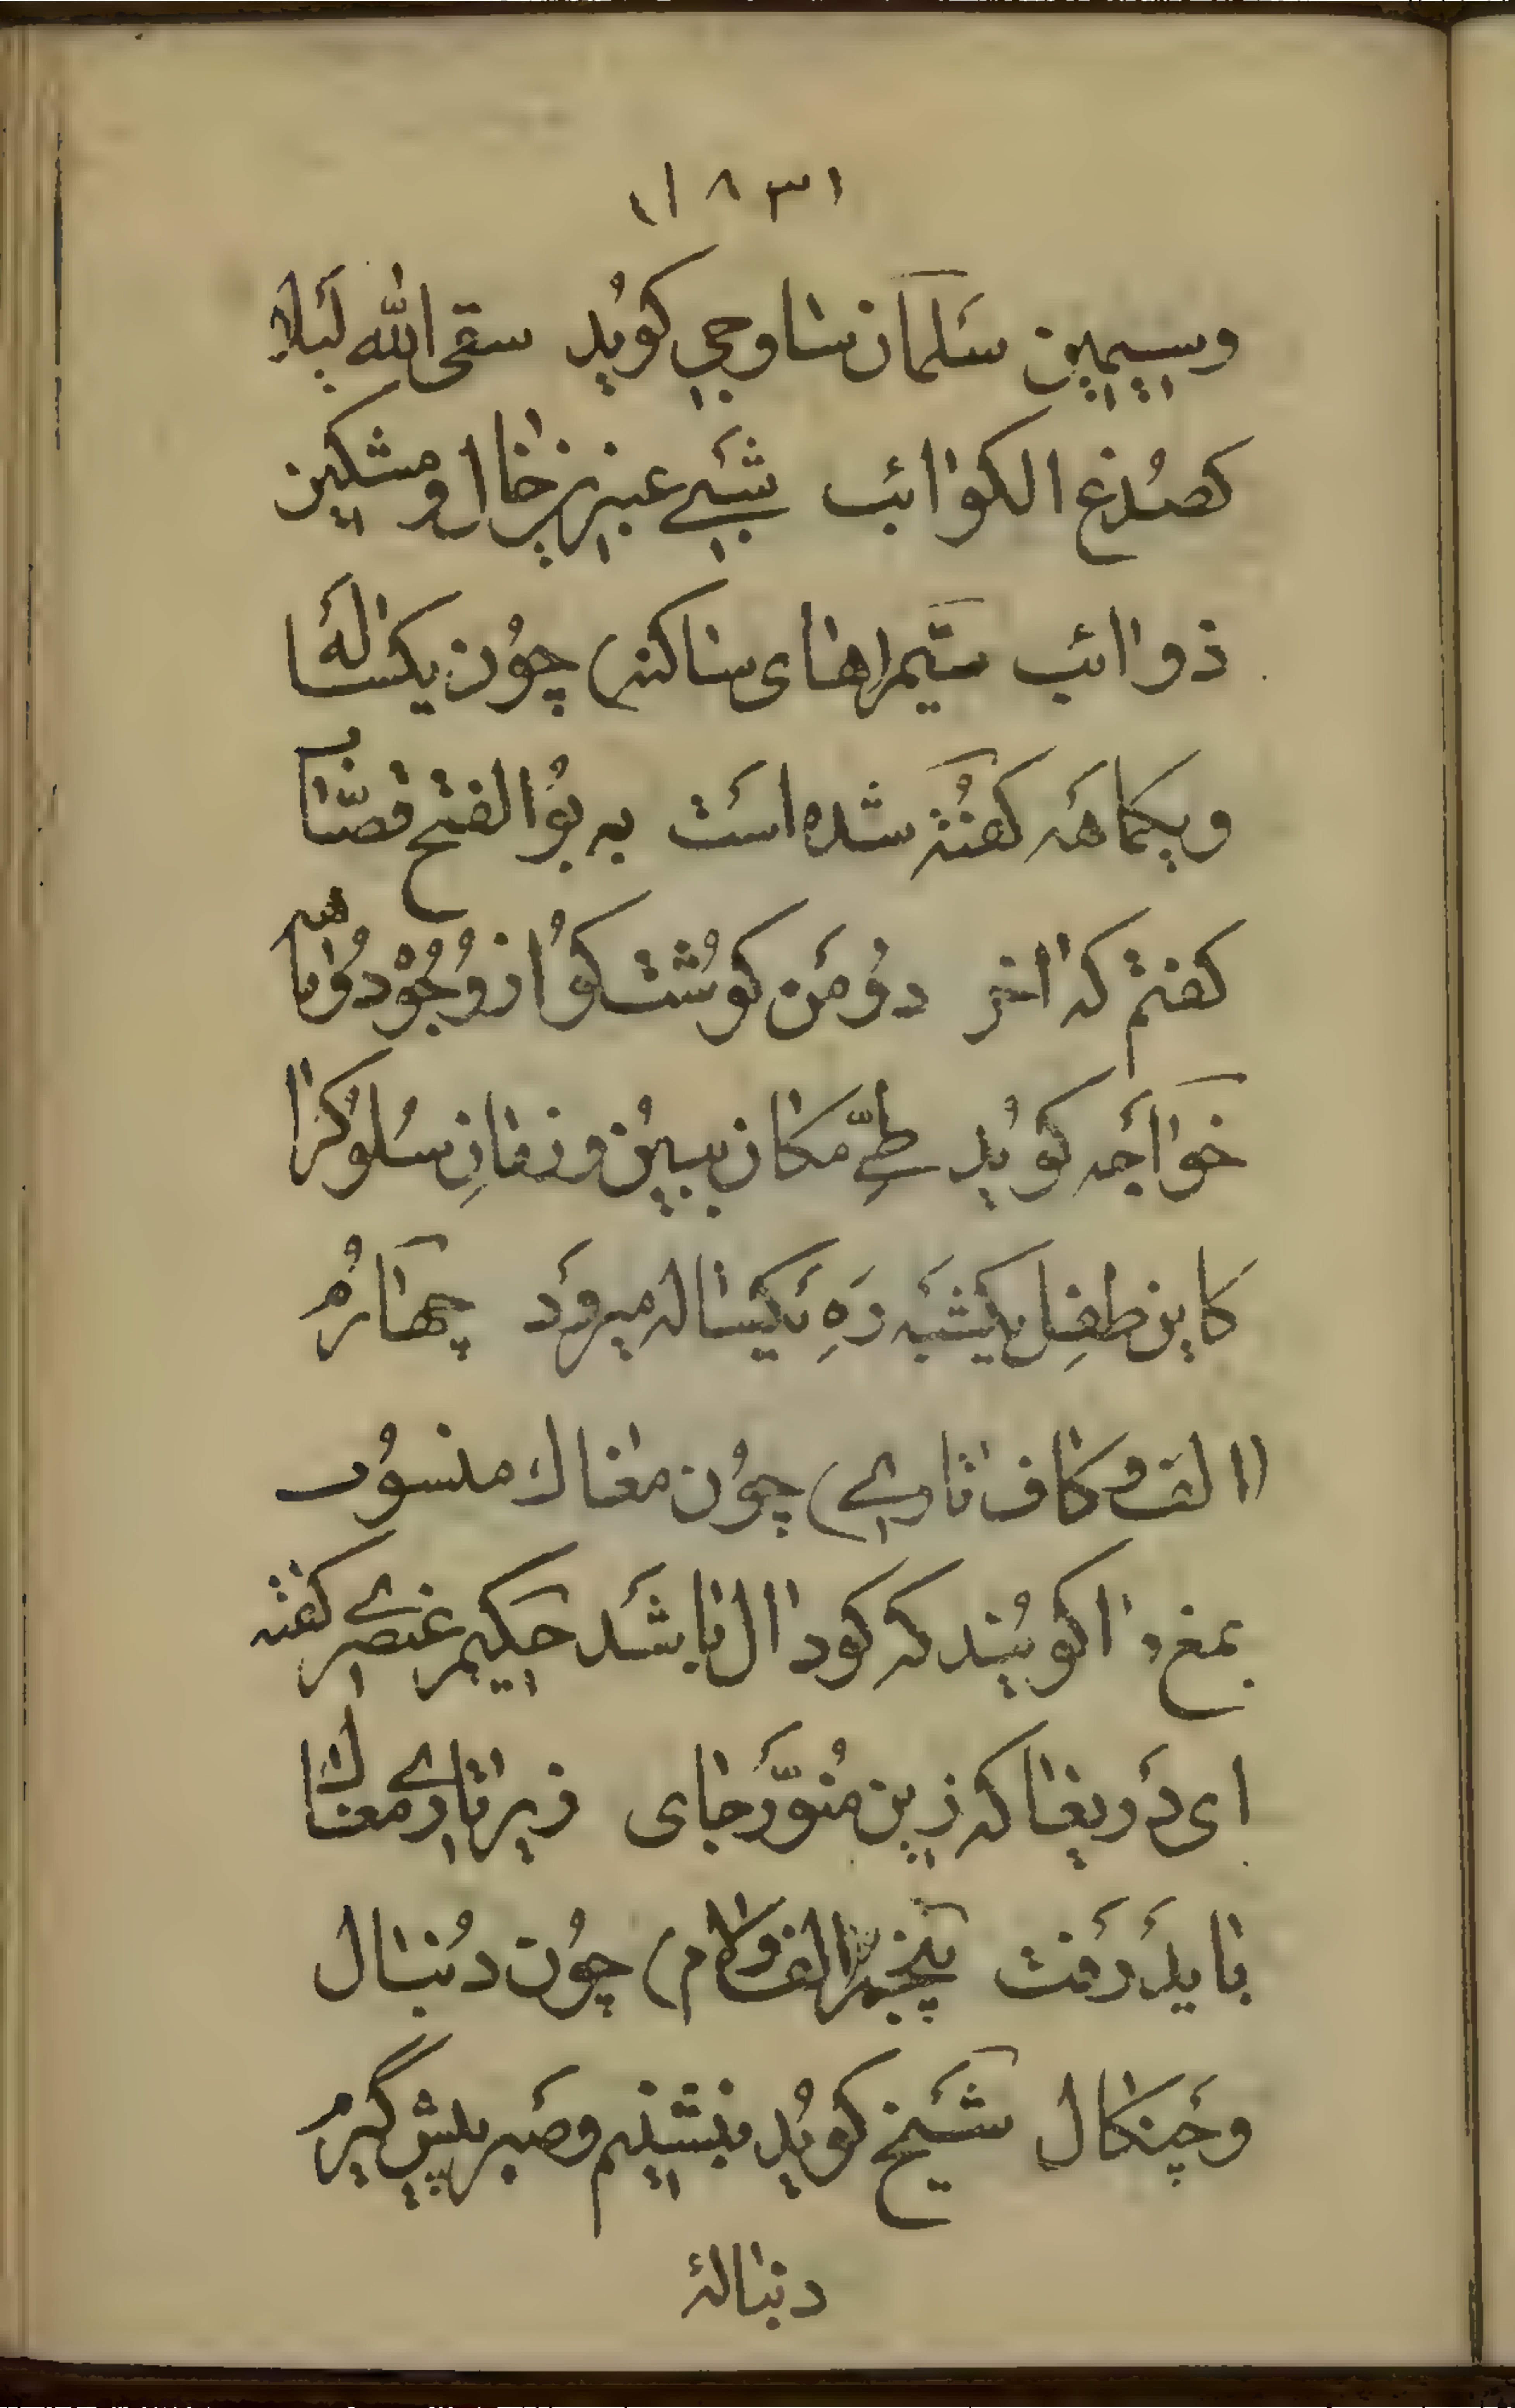 (١٨٣)
وسیمین سَلمان ساوجی کوُید سقی الله لَیلاً
کصُدغ الکواعب شَبی عنبرین خال و مشکین
ذوائب سیّم (های ساکنه) چوُن یکسالَه
ویکماهَه کفته شده است به بوُالفتح قصّاب
کفتم که اخر دوُمَن کوُشت کوُ از وُجوُد وُ ما هَه
خواجَه کوُید طیّ مکان ببین و زمانِ سُلوک را
کاین طفِل یکشبَه رَهِ یَکساله میروَد چهارُم
(الف و کاف تازی) چوُن مغاک منسوُب
بمغ را کویُند که کودال باشَد حَکیم عنصری کفته
ای دَریغا که زین مُنوَّر جای زیر تاری مغاک
بایدَ رَفت پنجم (الف و لام) چوُن دُنبال
وَچنکال شَیخ کوُید بنشینم و صَبر پیش گیرم
دنباله